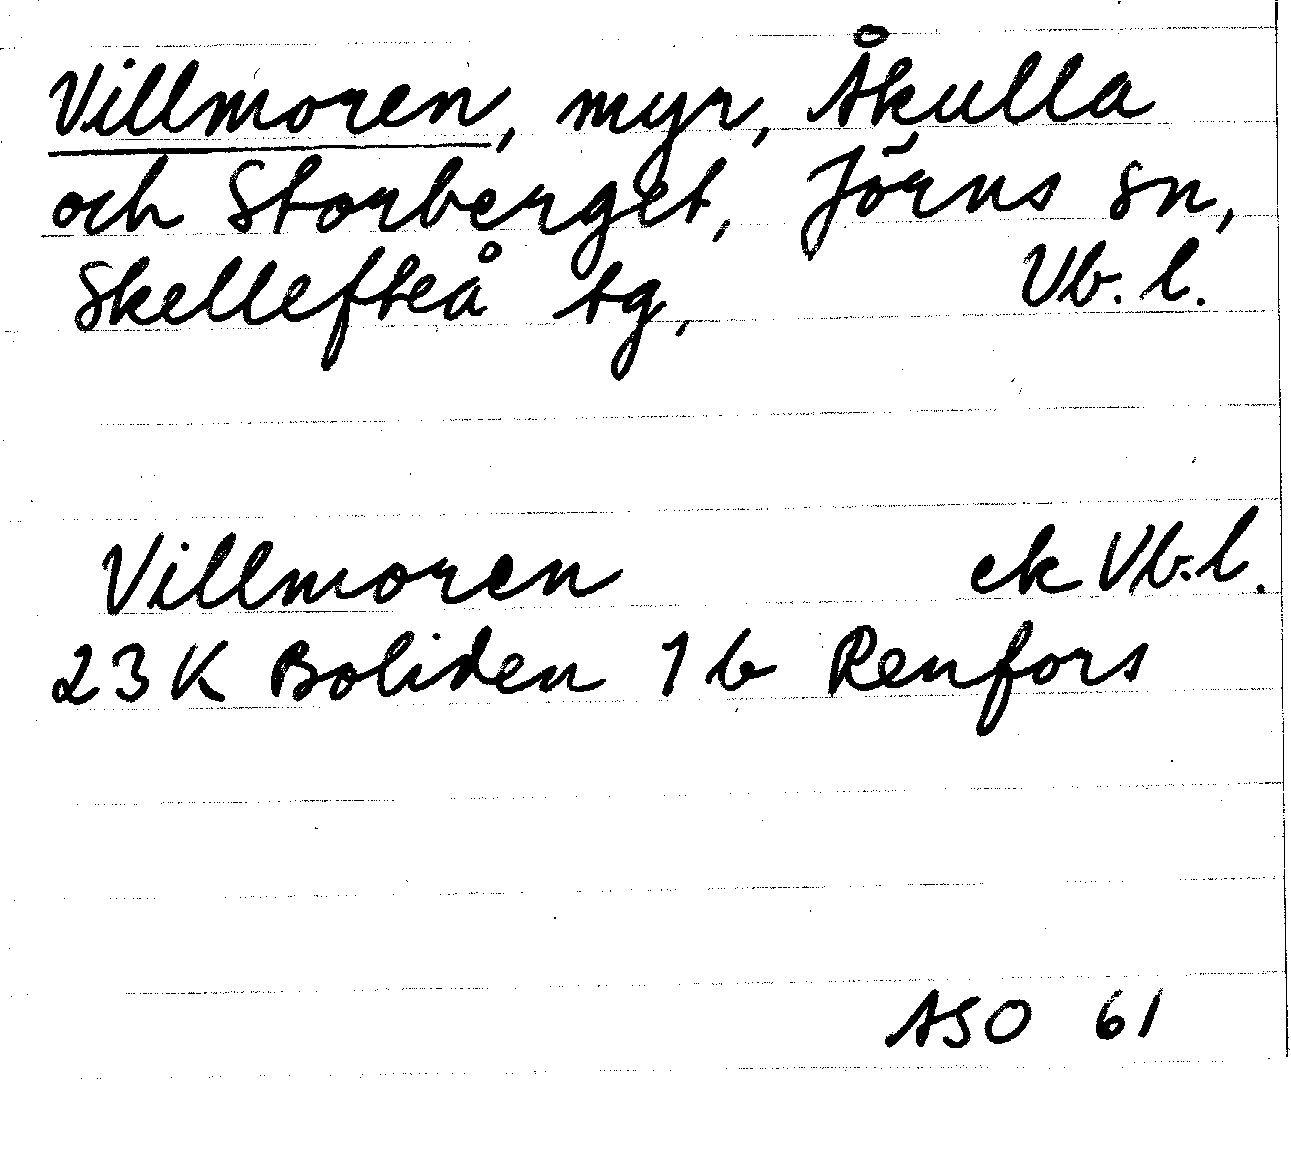 Villmoren, myr, Åkulla
och Storberget, Jörns sn,
Skellefteå tg, Vb. l.
Villmoren ek Vb.l.
23 K Boliden 1 b Renfors
ASO 61